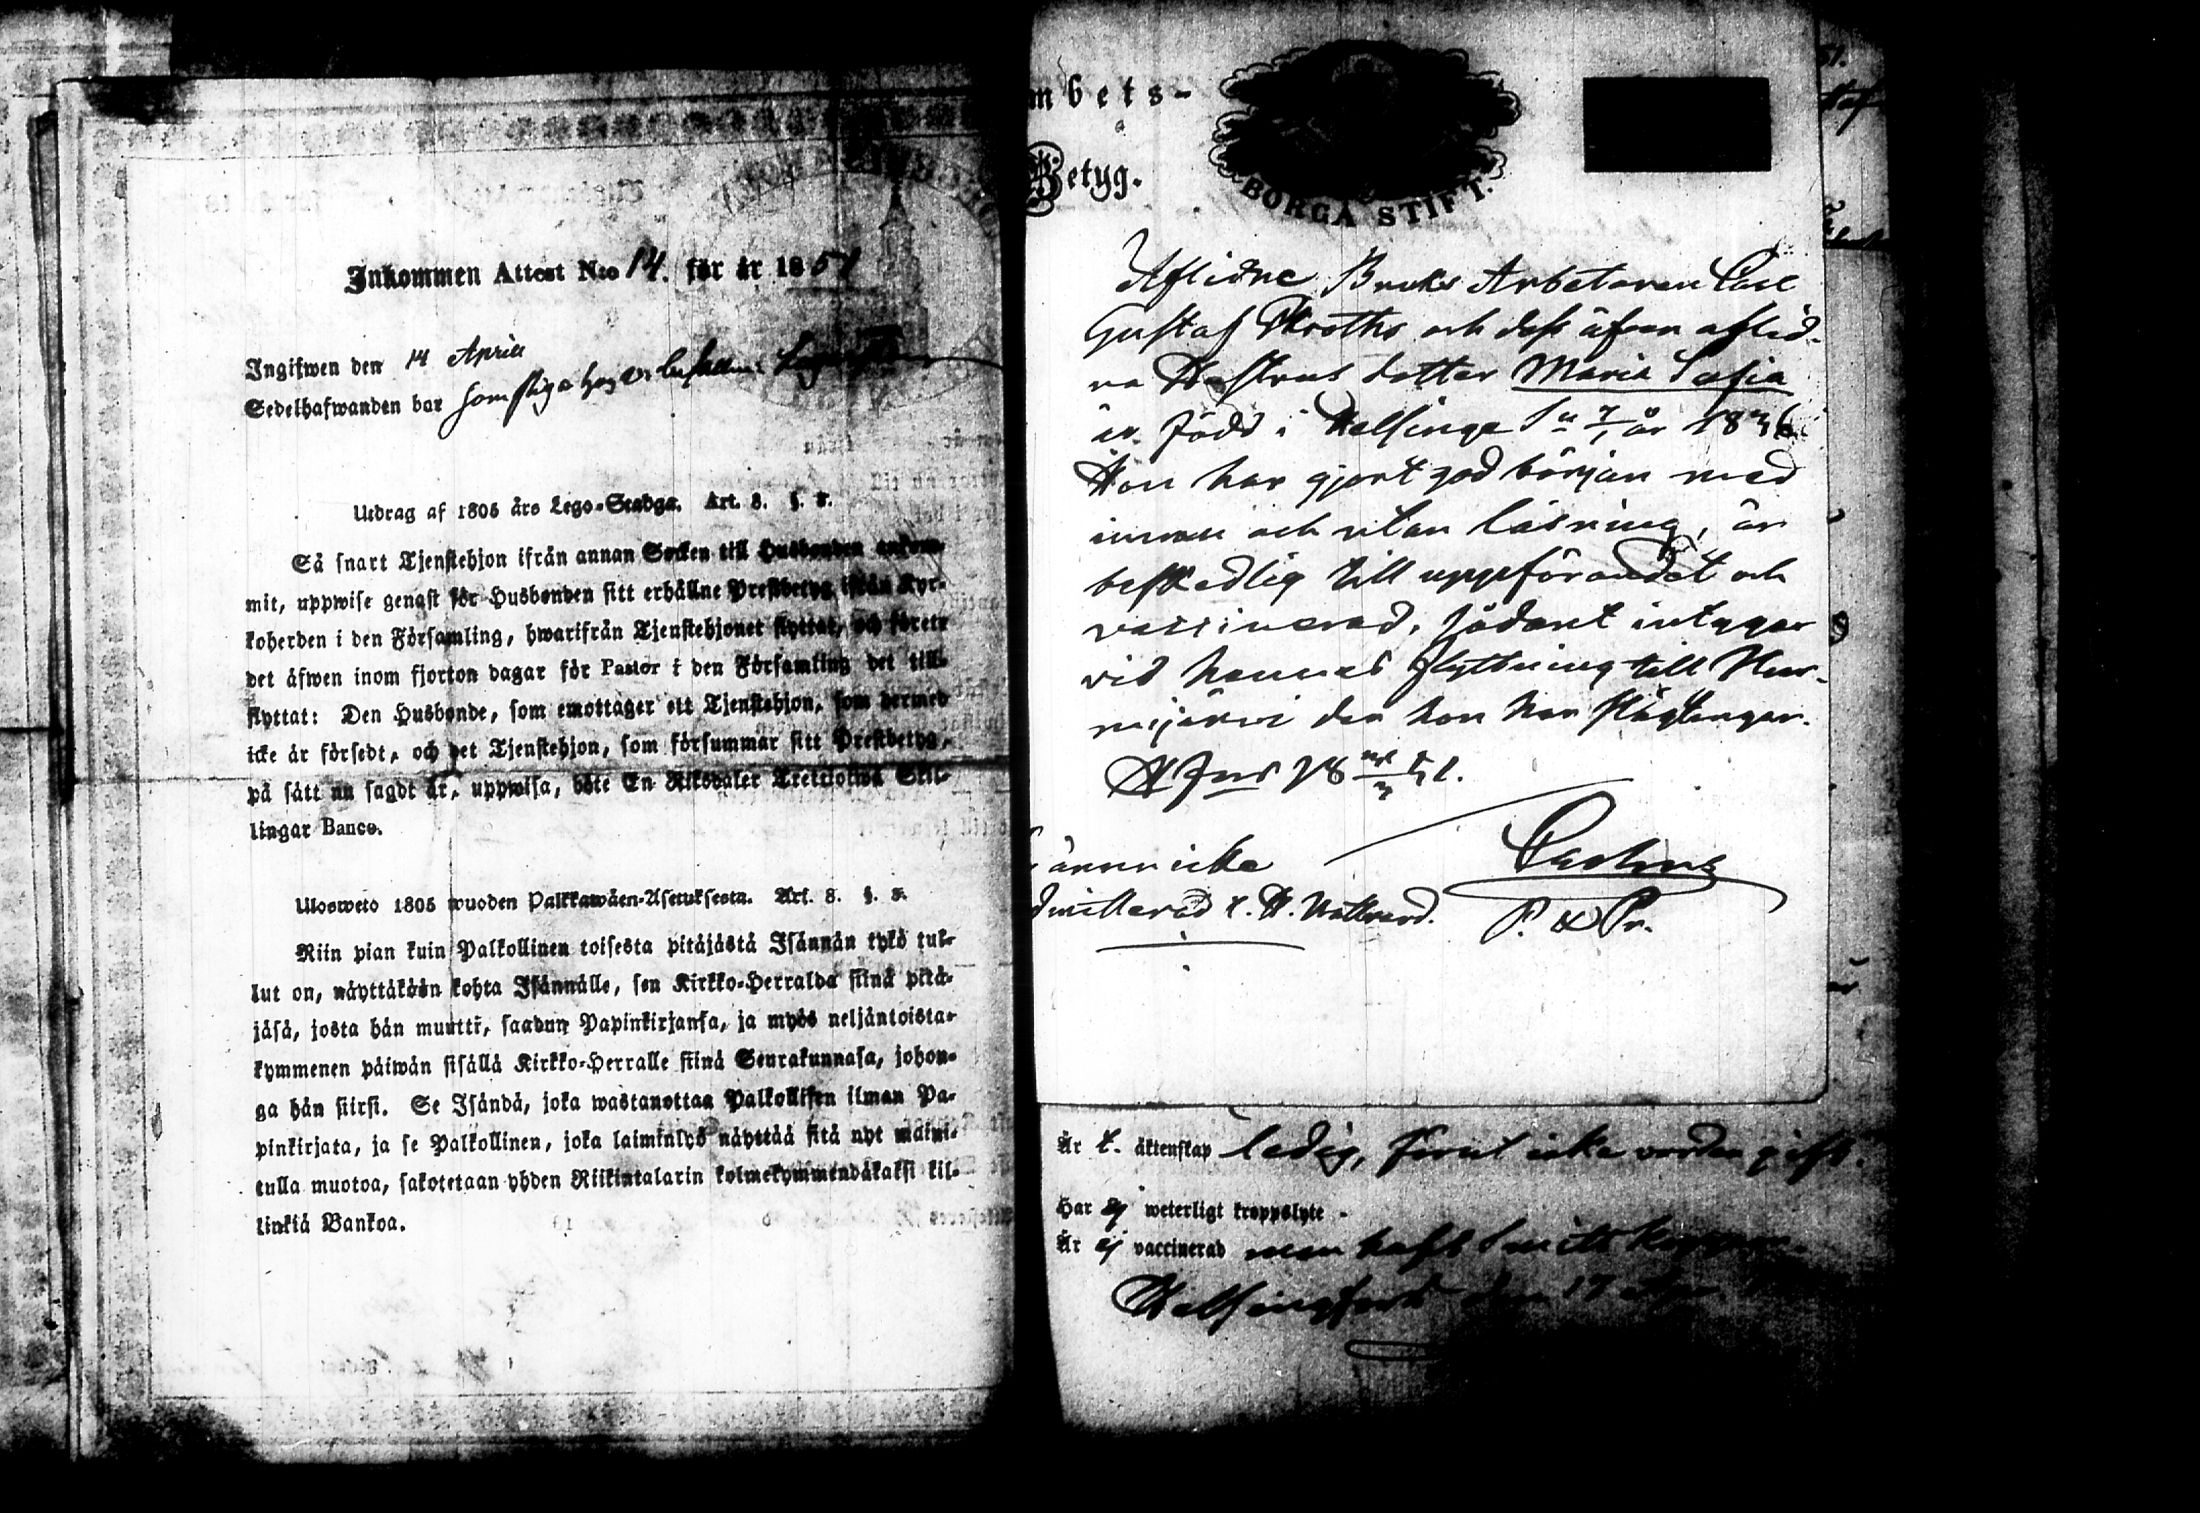 Inkommen Attest N:o 14. för år 1851
Ingifwen den 14 April
Sedelhafwanden bor
Utdrag af 1805 års Lego-Stadga. Art. 8. §. 8.
Så snart Tjenstehjon ifrån annan Socken till Husbonden ankom-
mit, uppwise genast för Husbonden sitt erhållne Prestbetyg ifrån Kyr-
koherden i den Församling, hwarifrån Tjenstehjonet flyttat, och förete
det äfwen inom fjorton dagar för Pastor i den Församling det till-
flyttat: Den Husbonde, som emottager ett Tjenstehjon, som dermed
icke är försedt, och det Tjenstehjon, som försummar sitt Prestbetyg,
på sätt nu sagdt är, uppwisa, böte En Riksdaler Trettiotwå Skil-
lingar Banco.
Ulosweto 1805 wuoden Palkkawäen-Asetuksesta. Art. 8. §. 8.
Niin pian kuin Palkollinen toisesta pitäjästä Isännän tykö tul-
lut on, näyttäkään kohta Isännälle, sen Kirkko-Herralda siinä pitä-
jäsä, josta hän muutti, saadun Papinkirjansa, ja myös neljäntoista-
kymmenen päiwän sisällä Kirkko-Herralle siinä Seurakunnasa, johon-
ga hän siirsi. Se Isändä, joka wastanottaa Palkollisen ilman Pa-
pinkirjata, ja se Palkollinen, joka laiminlyö näyttää sitä nyt maini-
tulla muotoa, sakotetaan yhden Riikintalarin kolmekymmendäkaksi kil-
linkiä Bankoa.
mbets-
Betyg.
BORGÅ STIFT.
Aflidne Bruks Arbetaren Carl
Gustaf och dess äfven aflid-
na Hustrus dotter Maria Sofia
är född i Helsinge d. 7/1 år 1836
Hon har gjort god början med
innan och utan läsning, är
beskedlig till uppförandet och
vaccinerad, sådant intygar
vid hennes flyttning till Nur-
mijärvi der hon har slägtingar.
H:fors 18 51.
änn icke
dmitterad t. H. Nattvard.
P. & Pr.
Är t. äktenskap ledig, förut icke varden gift.
Har ej weterligt kroppslyte -
Är ej vaccinerad men haft
Helsingfors den 17 Apr.